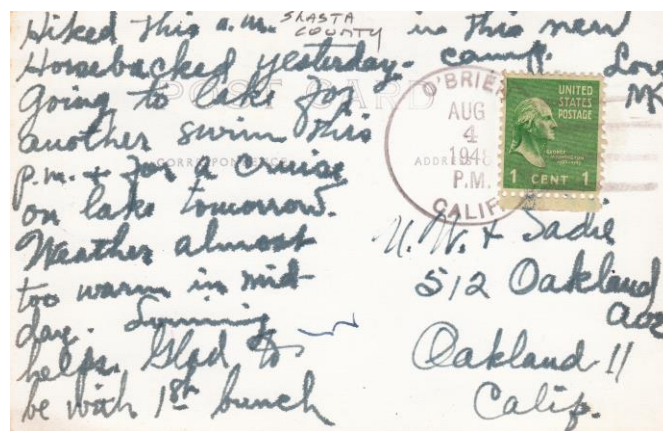 Hiked this a.m.
SHASTA
COUNTY
Horsebacked yesterday-
going to lake for
another swim this
p.m. + for a cruise
on lake tomorrow.
Weather almost
too warm in mid-
day. Swimming
helps. Glad to
be with 1st bunch
in this new
camp. Love
POST CARD
CORRESPONDENCE
ADDRESS
O'BRIEN
AUG
4
1948
P.M.
CALIF
UNITED
STATES
POSTAGE
GEORGE
WASHINGTON
1 CENT 1
+ Sadie
512 Oakland
Ave
Oakland-11
Calif.